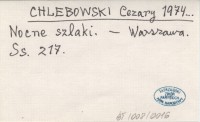 CHLEBOWSKI Cezary 1974...
Nocne szlaki. – Warszawa.
Ss. 217.